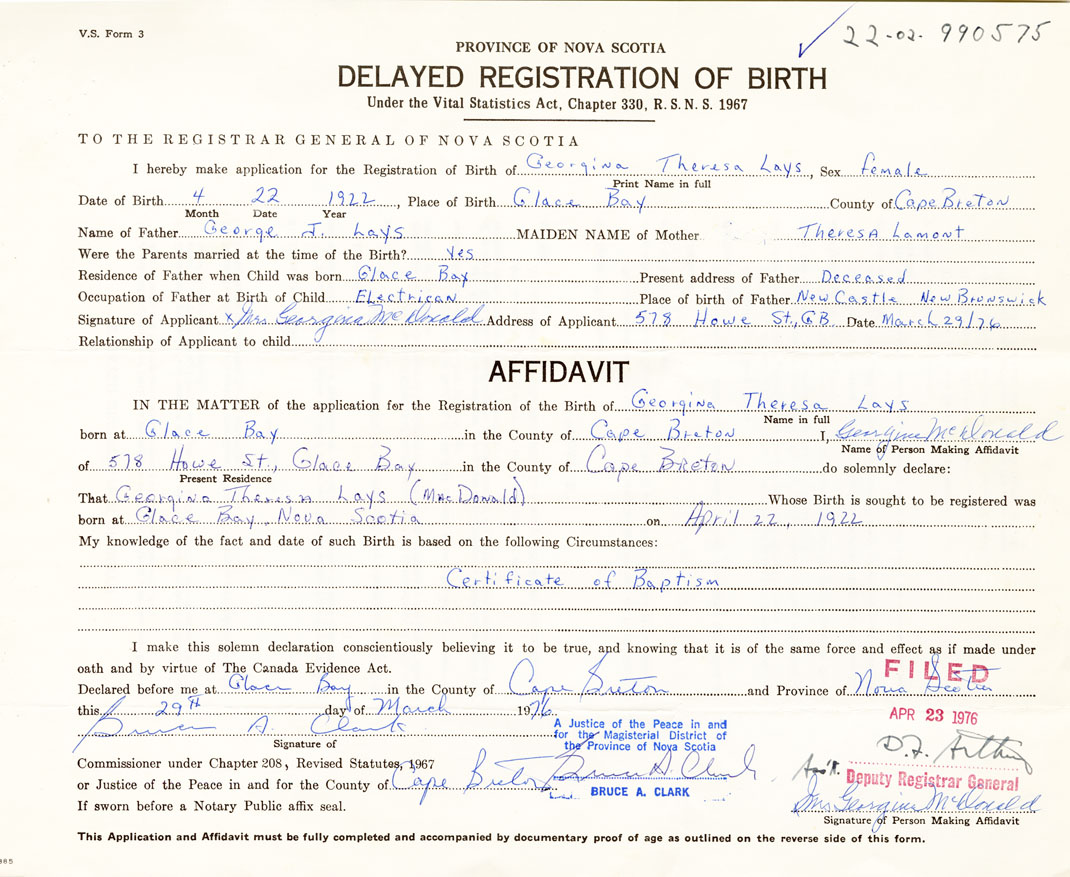 V.S. Form 3
22-02-990575
PROVINCE OF NOVA SCOTIA
DELAYED REGISTRATION OF BIRTH
Under the Vital Statistics Act, Chapter 330, R. S. N. S. 1967
TO THE REGISTRAR GENERAL OF NOVA SCOTIA
I hereby make application for the Registration of Birth of Georgina Theresa Lays, Sex female
Print Name in full
Date of Birth 4 22 1922, Place of Birth Glace Bay County of Cape Breton
Month Date Year
Name of Father George J. Lays MAIDEN NAME of Mother Theresa Lamont
Were the Parents married at the time of the Birth? Yes
Residence of Father when Child was born Glace Bay Present address of Father Deceased
Occupation of Father at Birth of Child Electrican Place of birth of Father New Castle New Brunswick
Signature of Applicant x Mrs Georgina McDonald Address of Applicant 578 Howe St., GB Date March 29/76
Relationship of Applicant to child
AFFIDAVIT
IN THE MATTER of the application for the Registration of the Birth of Georgina Theresa Lays
Name in full
born at Glace Bay in the County of Cape Breton I, Georgina McDonald
Name of Person Making Affidavit
of 578 Howe St., Glace Bay in the County of Cape Breton do solemnly declare:
Present Residence
That Georgina Theresa Lays (MacDonald) Whose Birth is sought to be registered was
born at Glace Bay Nova Scotia on April 22, 1922
My knowledge of the fact and date of such Birth is based on the following Circumstances:
Certificate of Baptism
I make this solemn declaration conscientiously believing it to be true, and knowing that it is of the same force and effect as if made under
oath and by virtue of The Canada Evidence Act.
FILED
Declared before me at Glace Bay in the County of Cape Breton and Province of Nova Scotia
this 29th day of March 1976
APR 23 1976
Bruce A. Clark
A Justice of the Peace in and
for the Magisterial District of
the Province of Nova Scotia
Signature of
Commissioner under Chapter 208, Revised Statutes, 1967
Ass't. Deputy Registrar General
or Justice of the Peace in and for the County of Cape Breton Bruce A. Clark
BRUCE A. CLARK
Mrs Georgina McDonald
If sworn before a Notary Public affix seal.
Signature of Person Making Affidavit
This Application and Affidavit must be fully completed and accompanied by documentary proof of age as outlined on the reverse side of this form.